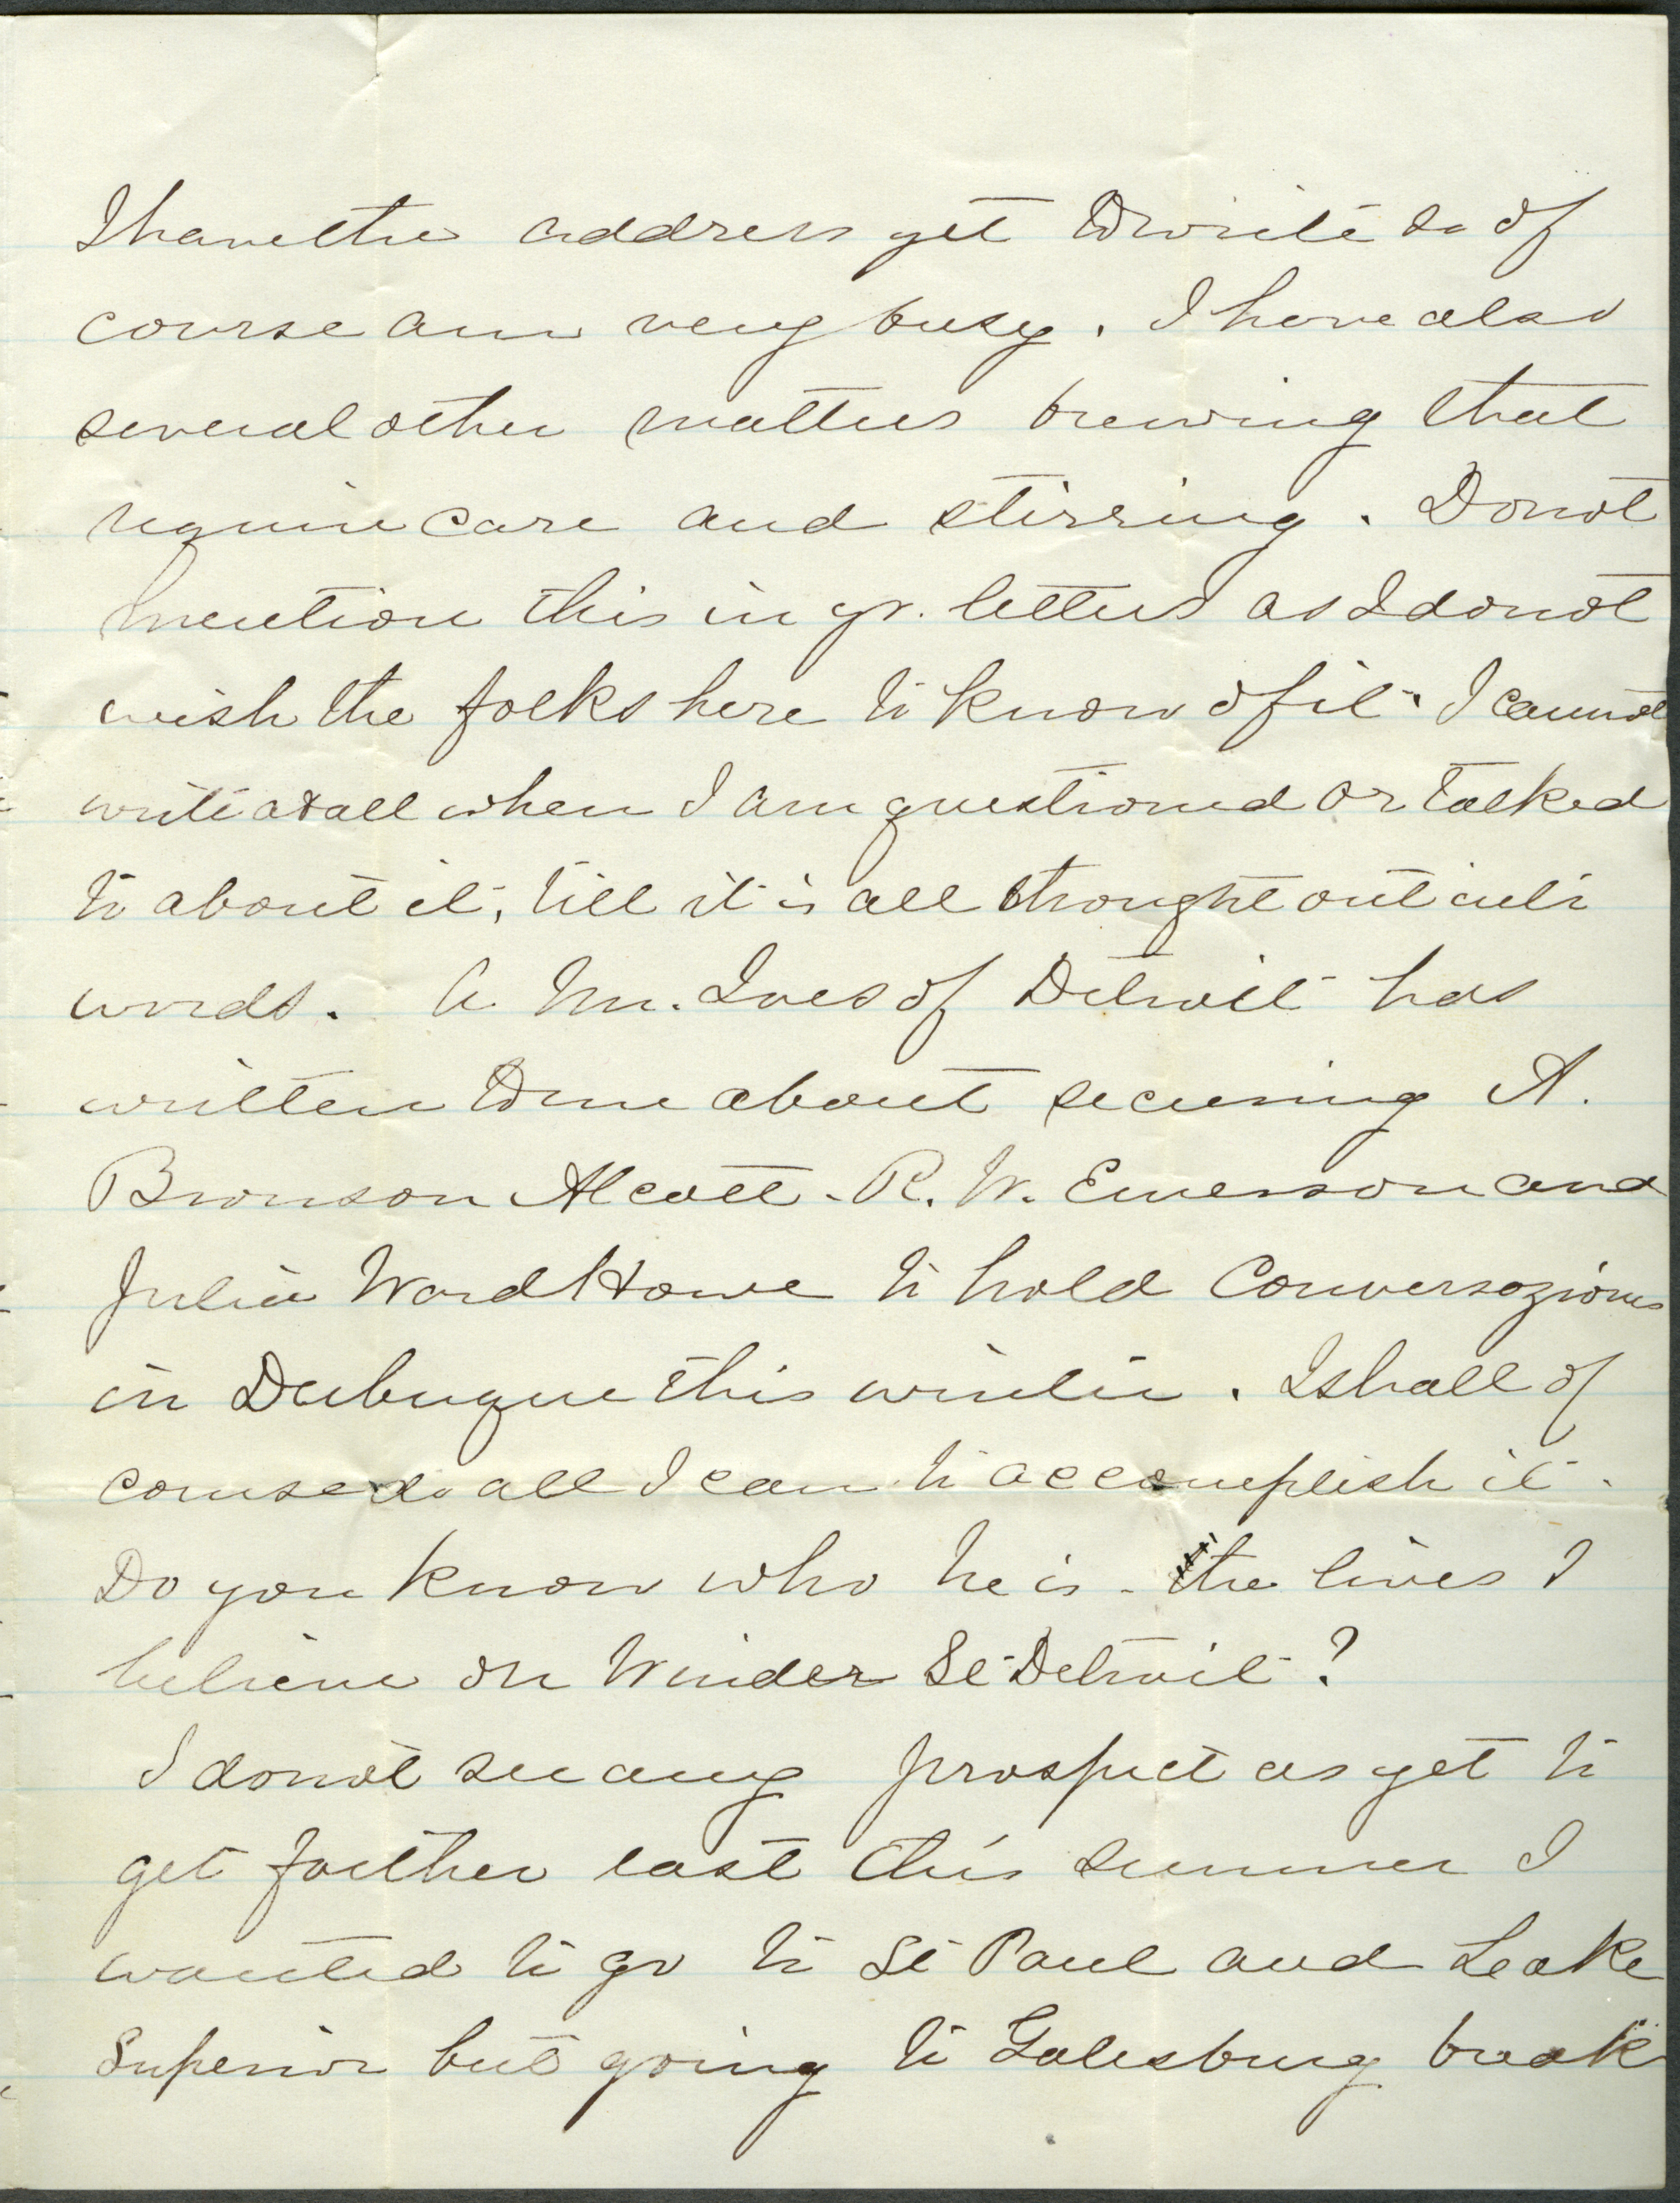 I have the address yet to write so of
course am very busy. I have also
several other matters brewing that
require care and stirring. Do not
mention this in yr. letters as I do not
wish the folks here to know of it. I cannot
write at all when I am questioned or talked
to about it, till it is all thought out into
words. A Mr. Ives of Detroit has
written to me about securing A.
Bronson Alcott - R. W. Emerson and
Julia Ward Howe to hold Conversaziones
in Dubuque this winter. I shall of
course do all I can to accomplish it -
Do you know who he is - He lives I
believe on Winder St Detroit?
I do not see any prospect as yet to
get farther east this summer I
wanted to go to St Paul and Lake
Superior but going to Galesburg break